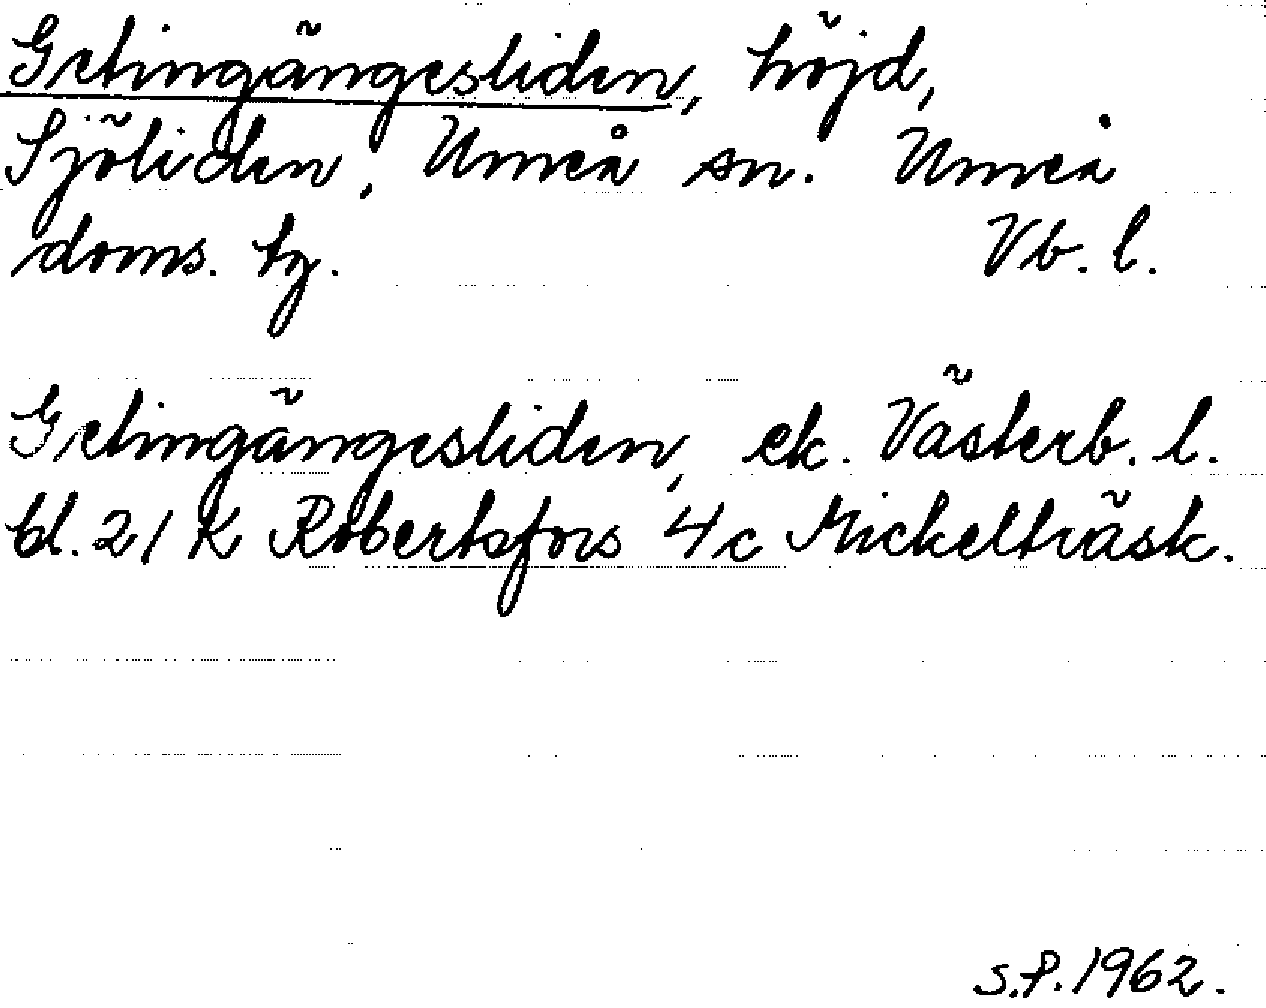 Getingängesliden, höjd,
Sjöliden, Umeå sn. Umeå
doms. tg. Vb. l.
Getingängesliden, ek. Västerb. l.
bl. 21 K Robertsfors 4c Mickelträsk.
S.P. 1962.